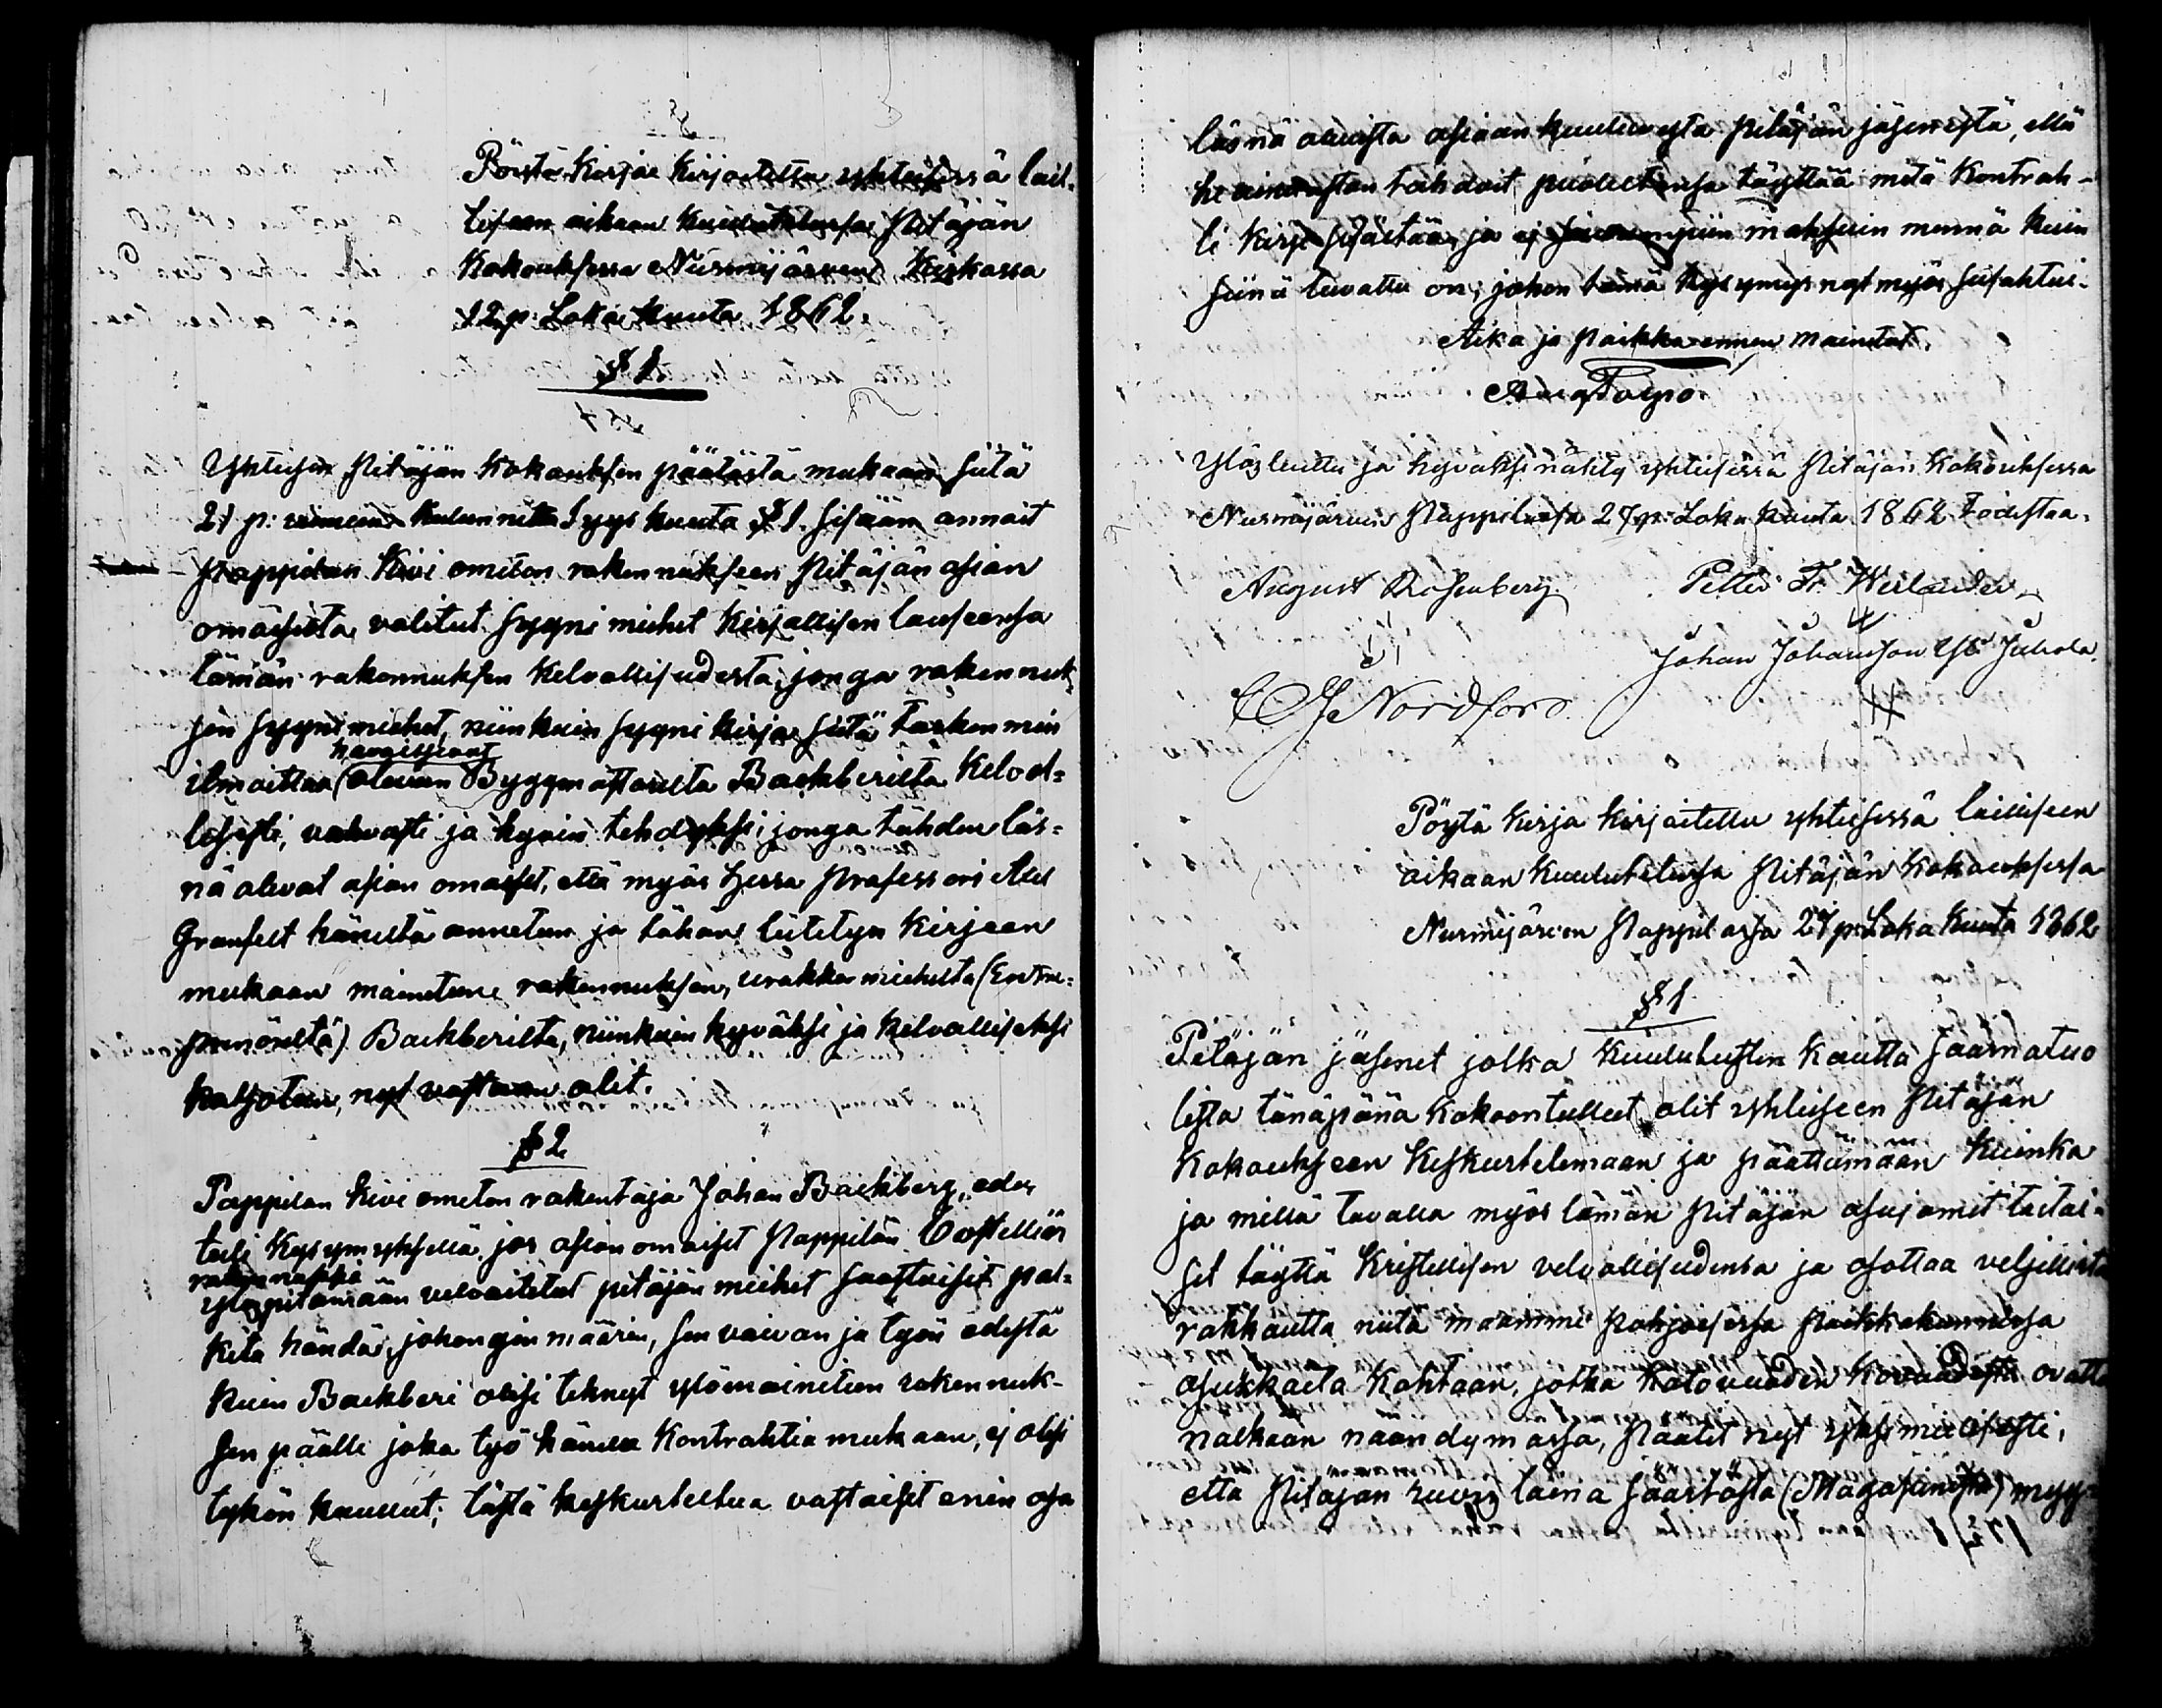 Pöystä kirja kirjoitettu yhteisessä lail-
liseen aikaan kuulutetussa Pitäjän
Kokouksessa Nurmijärven Kirkossa
12 p: Loka kuuta 1862.
§ 1
Yhteisen Pitäjän Kokouksen päätöstä mukaan siitä
21 p: viimein kulunutta Syys kuuta § 1. sisään annoit
Pappilan Kivi ometon rakennukseen Pitäjän asian
omaisilta valitut syyni miehet kirjallisen lauseensa
tämän rakennuksen kelvollisudesta, jonga rakennuk-
sen syyni miehet, niinkuin syyni kirja siitä tarkemmin
ilmoittaa (olevan Byggmästarilta Backberilta kelvol-
lisesti, vahvasti ja hyvin tehdyksi; jonga tähden läs-
nä olevat asian omaiset, että myös Herra Professori
Granfelt häneltä annetun ja tähän liitetyn Kirjeen
mukaan mainitun rakennuksen, urakka mieheltä (Entre-
prenöriltä) Backberilta, niinkuin hyväksi ja kelvolliseksi
katsotun, nyt vastaan otit.
§ 2
Pappilan kivi ometon rakentaja Johan Backberg, edes
tuli kysymyksellä, jos asian omaiset Pappilan
yläspitämään velvoitetut pitäjän miehet suostuisit pal-
kita händä, johongin määrin, sen vaivan ja työn edestä
kuin Backberi olisi tehnyt ylömainitun rakennuk-
sen päälle joka työ hänelle Kontrahtia mukaan, ej olisi
tykön kuullut; tästä keskusteltua vastaisit enin osa
läsnä olevista asiaan kuuluvista pitäjän jäsenistä, että
he ainoastan tahdoit puolestansa täyttää mitä Kontrah-
ti kirja sisältää, ja ej suurempiin maksuin mennä kuin
siinä luvattu on, johon tämä kysymys nyt myös
Aika ja paikka ennen mainitut.
Ylösluettu ja hyväksi nähty yhteisessä Pitäjän Kokouksessa
Nurmijärven Pappilassa 27 p: Loka kuuta 1862 todistaa.
August Rosenberg. Petter Fr. Welander
Johan Johansson Yli Juhola.
C J Nordfors
Pöytä kirja kirjoitettu yhteisessä lailliseen
aikaan kuulutetussa Pitäjän Kokouksessa
Nurmijärven Pappilassa 27 p: Loka kuuta 1862
§ 1
Pitäjän jäsenet jotka kuulutusten kautta Saarnatuo
lista tänäpänä kokoontulleet olit yhteiseen Pitäjän
Kokoukseen keskustelemaan ja päättämään kuinka
ja millä tavalla myös tämän Pitäjän asujamet taitai-
sit täyttä kristillisen velvollisudensa ja osottaa veljellistä
rakkautta niitä maamme pohjoisessa paikkakunnissa
asukkaita kohtaan, jotka katovuoden kovuudesta ovatte
nälkään näändymässä, Päätit nyt yksimielisesti,
että Pitäjän ruvis laina säästöstä (Magasinista) myy-